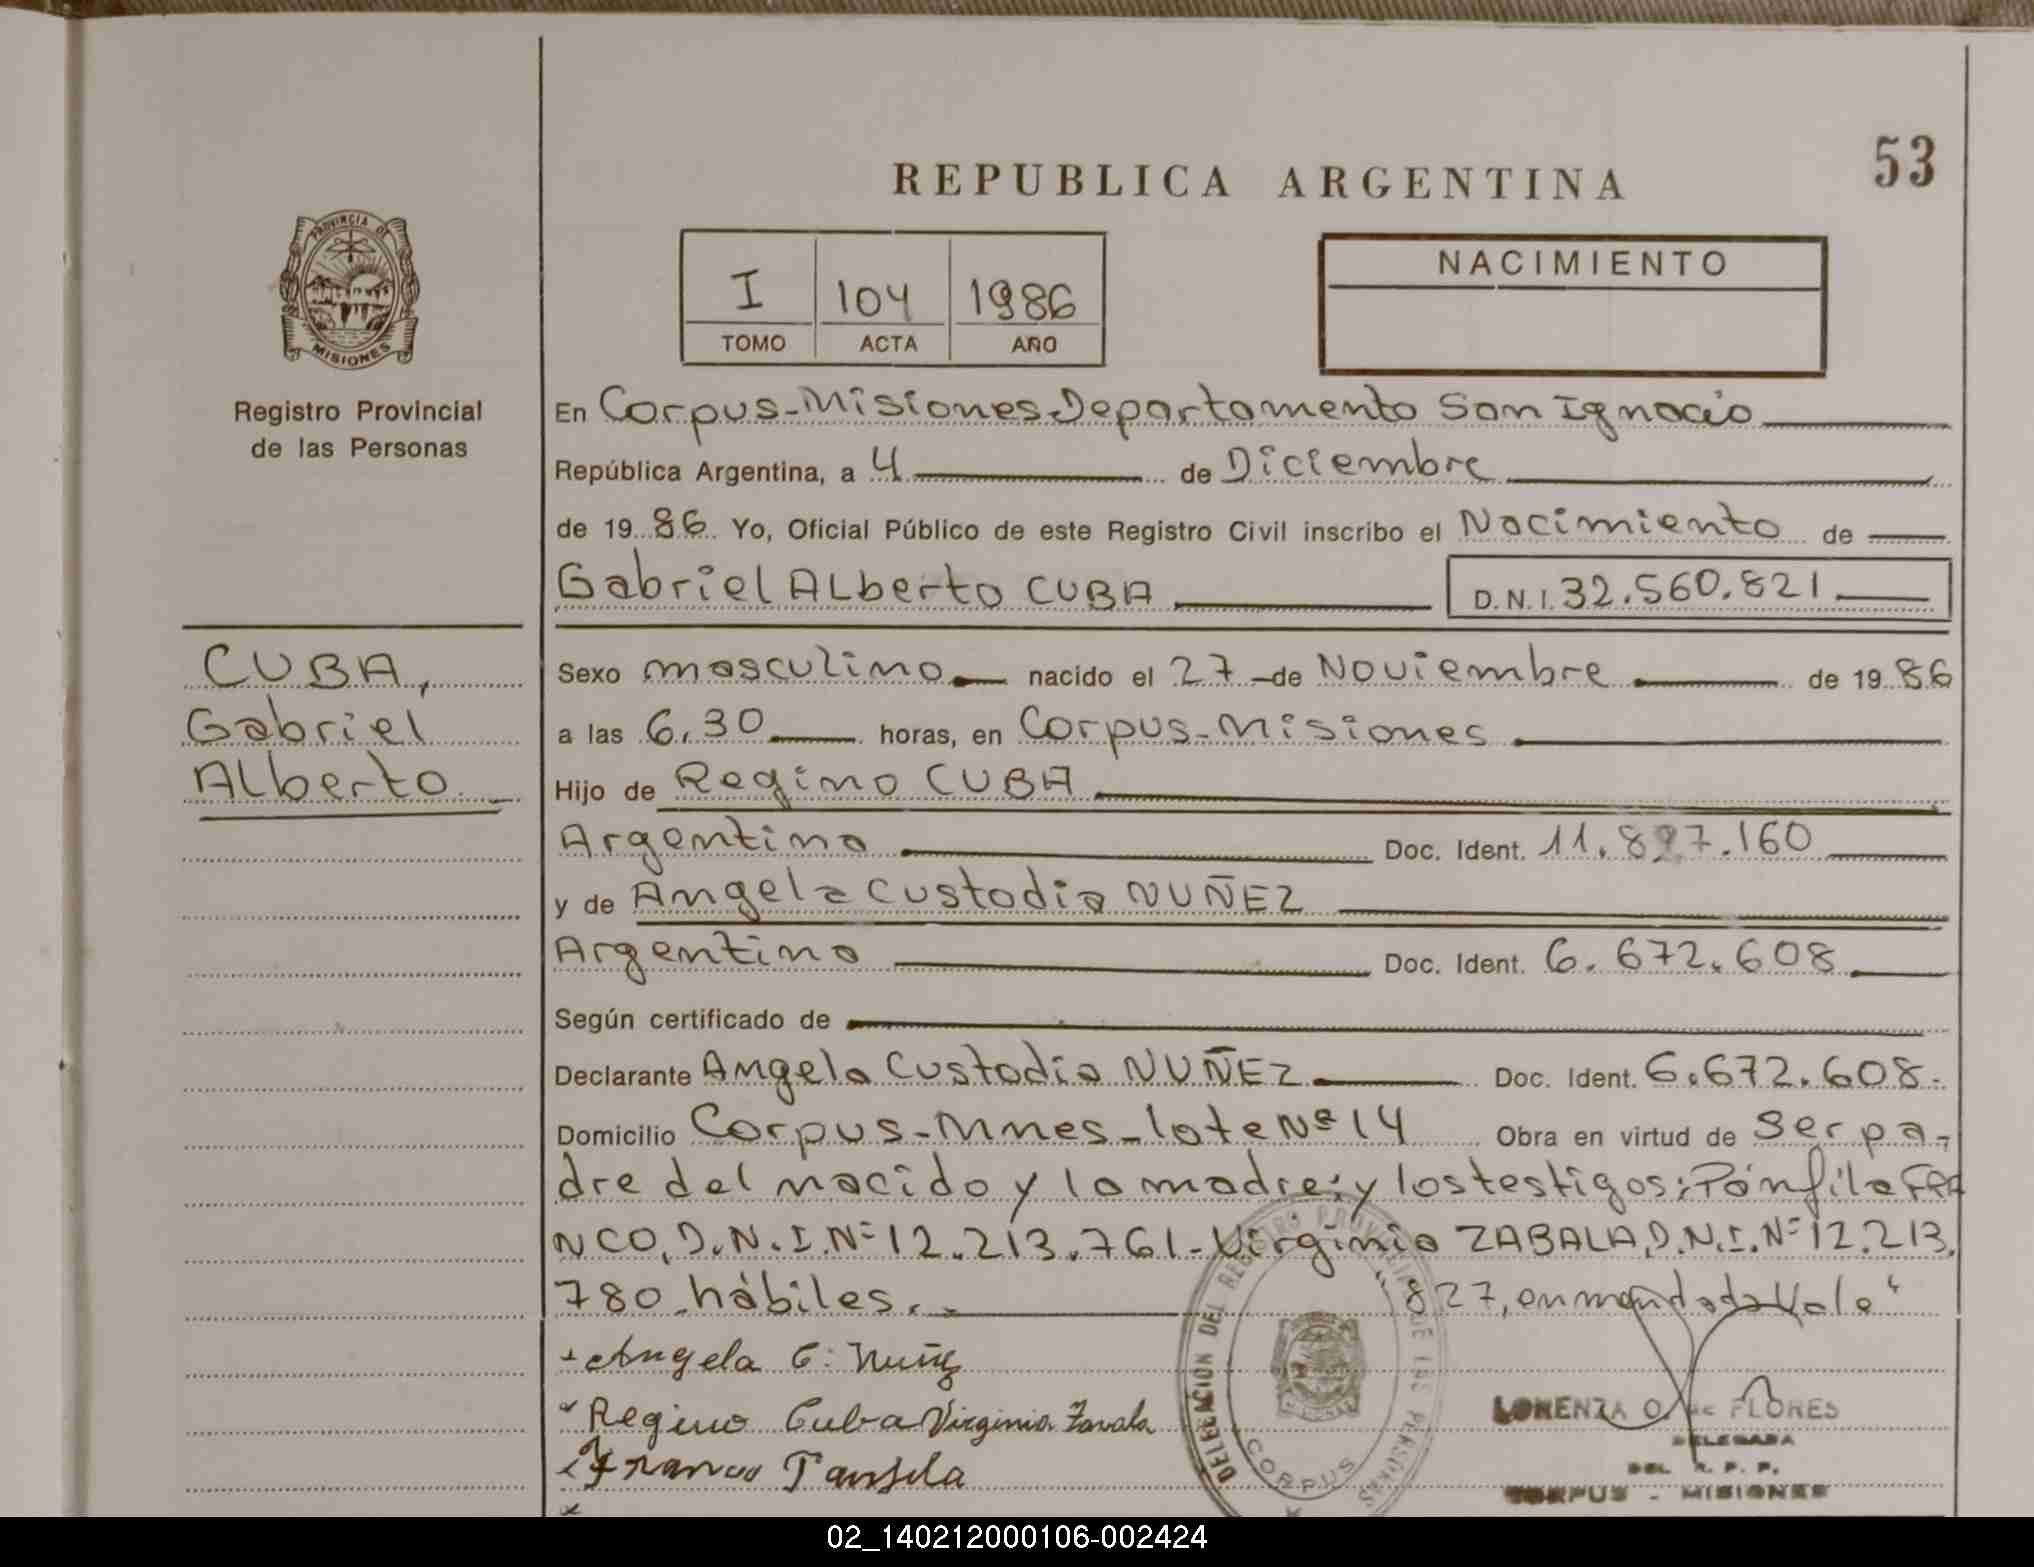 53
REPUBLICA ARGENTINA
PROVINCIA DE
MISIONES
Registro Provincial
de las Personas
I 104 1986
TOMO ACTA AÑO
NACIMIENTO
En Corpus-Misiones-Departamento San Ignacio
República Argentina, a 4 de Diciembre
de 1986 Yo, Oficial Público de este Registro Civil inscribo el Nacimiento de
Gabriel ALberto CUBA D.N.I. 32.560.821
CUBA,
Gabriel
ALberto
Sexo masculino nacido el 27 de Noviembre de 1986
a las 6,30 horas, en Corpus-Misiones
Hijo de Regino CUBA
Argentino Doc. Ident. 11.827.160
y de Angela Custodia NUÑEZ
Argentina Doc. Ident. 6.672.608
Según certificado de
Declarante Angela Custodia NUÑEZ Doc. Ident. 6.672.608.
Domicilio Corpus-Mnes-lote Nº 14 Obra en virtud de Ser pa-
dre del nacido y la madre; y los testigos: Pánfila FRA
NCO, D.N.I. Nº 12.213.761-Virginia ZABALA, D.N.I. Nº 12.213.
780 hábiles. "827, enmendado Vale"
Angela C. Nuñez
Regino Cuba Virginia Zavala
Franco
DELEGACION DEL REGISTRO PROVINCIAL DE LAS PERSONAS
CORPUS
LORENZA O. de FLORES
DELEGADA
DEL R. P. P.
CORPUS - MISIONES
02_140212000106-002424